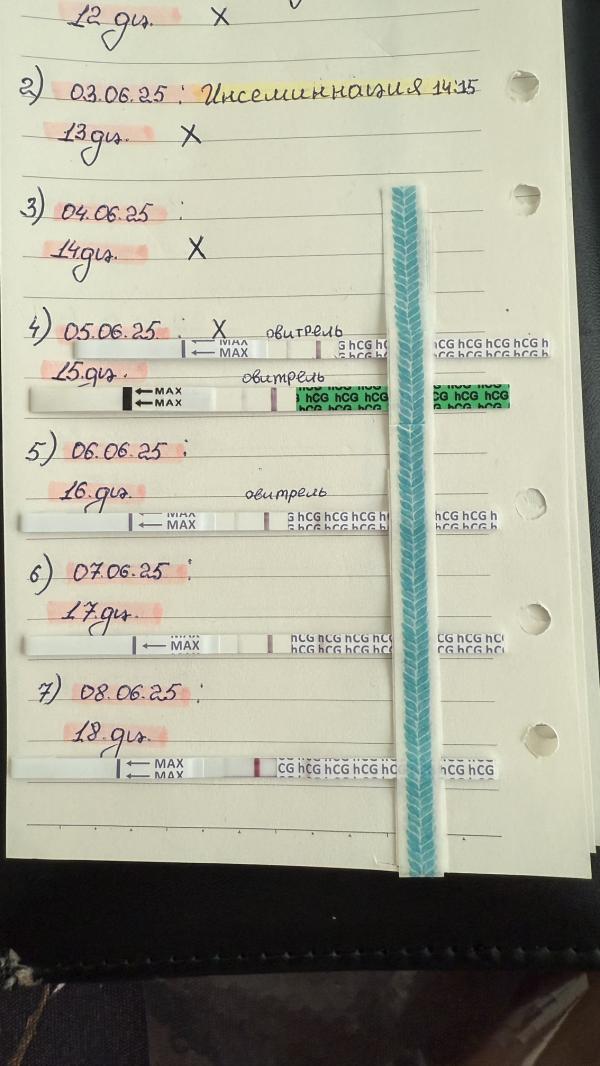 12 дц. X
2) 03.06.25 : Инсеминнация 14:15
13 дц. X
3) 04.06.25 :
14 дц. X
4) 05.06.25 : X овитрель
MAX
MAX
G hCG hC G hCG hCG hCG
15. дц. овитрель
MAX
MAX
hCG hCG hCG CG hCG hCG
5) 06.06.25 :
16. дц. овитрель
MAX
MAX
G hCG hCG hCG CG hCG h
6) 07.06.25 :
17. дц.
MAX
MAX
hCG hCG hCG hCG hCG hCG
hCG hCG hCG hCG hCG hCG
7) 08.06.25 :
18. дц.
MAX
MAX
CG hCG hCG hCG hCG hCG